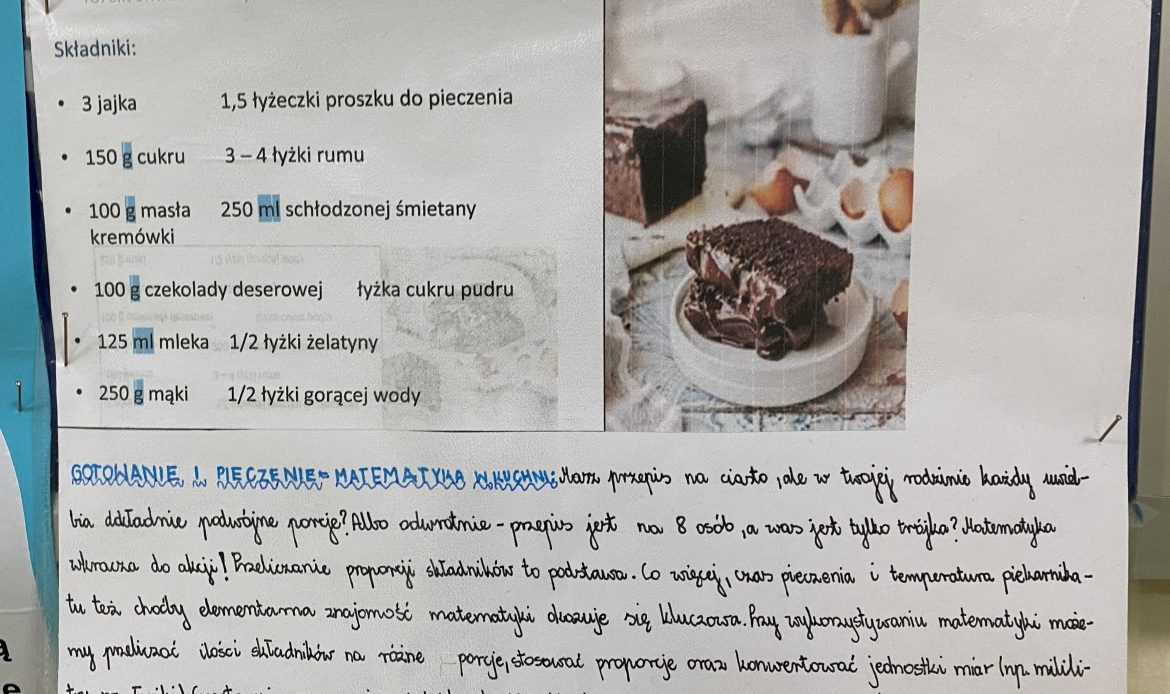 Składniki:
• 3 jajka 1,5 łyżeczki proszku do pieczenia
• 150 g cukru 3 – 4 łyżki rumu
• 100 g masła 250 ml schłodzonej śmietany
kremówki
• 100 g czekolady deserowej łyżka cukru pudru
• 125 ml mleka 1/2 łyżki żelatyny
• 250 g mąki 1/2 łyżki gorącej wody
GOTOWANIE I PIECZENIE- MATEMATYKA W KUCHNI: Masz przepis na ciasto, ale w twojej rodzinie każdy uwiel-
bia dokładnie podwójne porcje? Albo odwrotnie - przepis jest na 8 osób, a was jest tylko trójka? Matematyka
wkracza do akcji! Przeliczanie proporcji składników to podstawa. Co więcej, czas pieczenia i temperatura piekarnika-
tu też choćby elementarna znajomość matematyki okazuje się kluczowa. Przy wykorzystywaniu matematyki może-
my przeliczać ilości składników na różne porcje, stosować proporcje oraz konwertować jednostki miar (np. milili-
ą